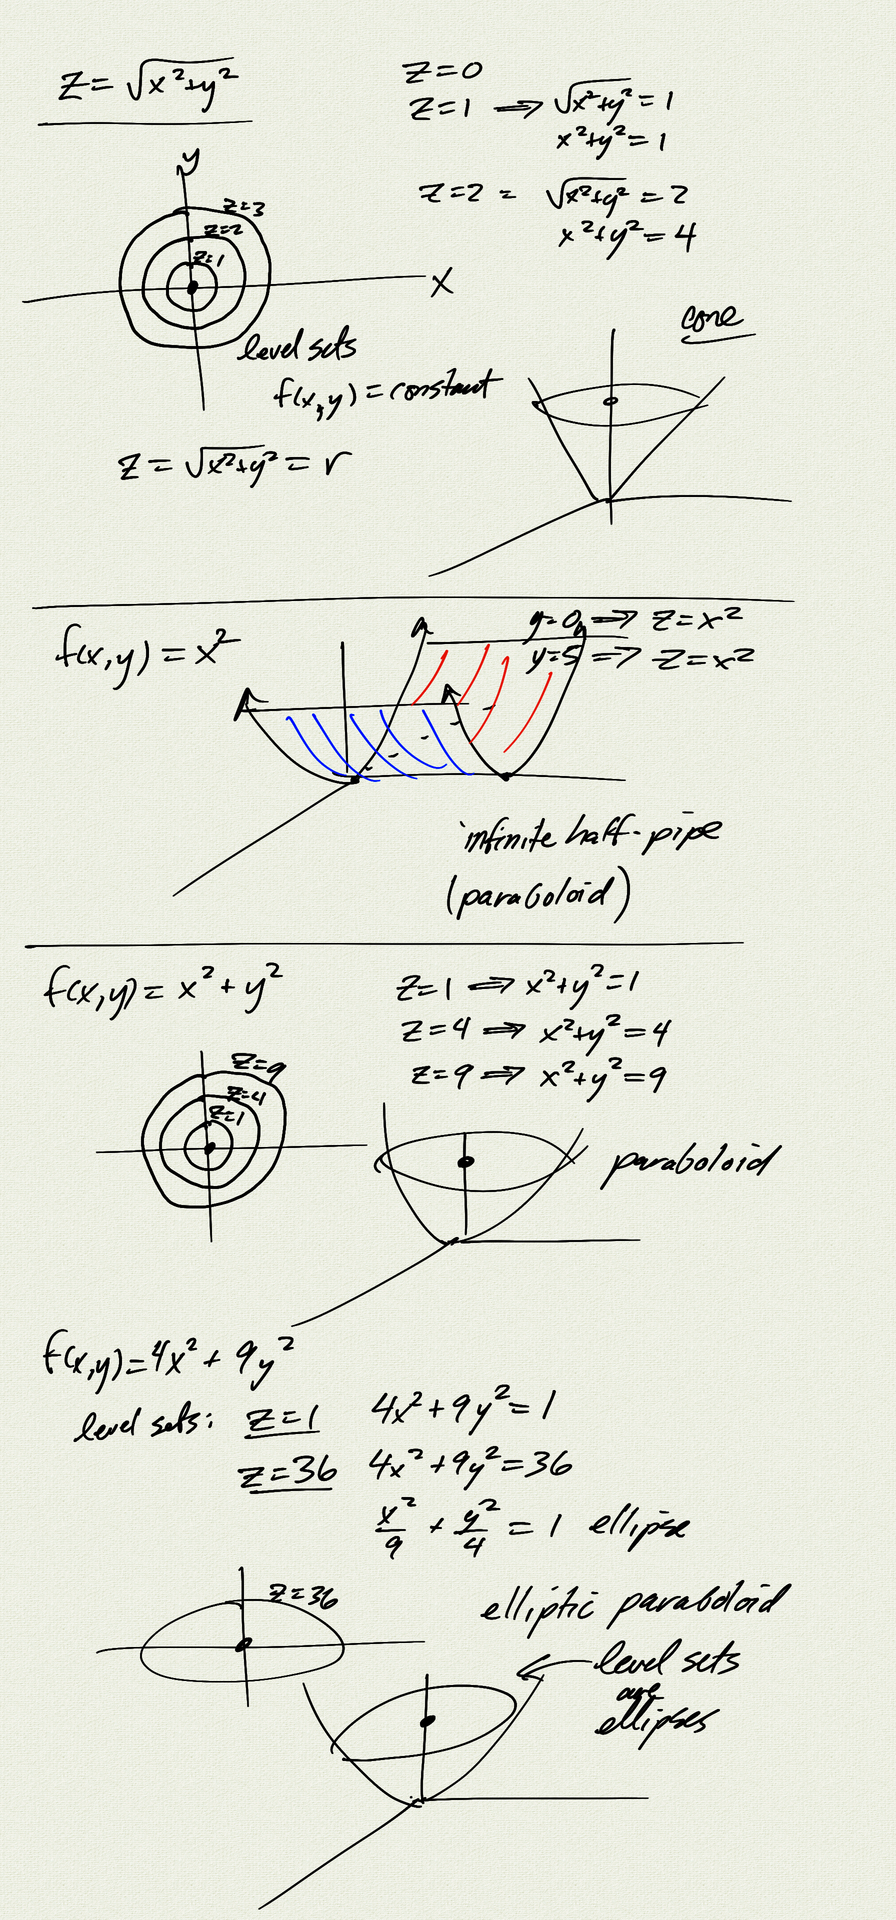 z = √x²+y²
z=0
z=1 ⟹ √x²+y² = 1
x²+y² = 1
z=2 = √x²+y² = 2
x²+y² = 4
y
z=3
z=2
z=1
x
level sets
f(x,y) = constant
cone
z = √x²+y² = r
f(x,y) = x²
y=0 ⟹ z=x²
y=5 ⟹ z=x²
infinite half-pipe
(paraboloid)
f(x,y) = x² + y²
z=1 ⟹ x²+y²=1
z=4 ⟹ x²+y²=4
z=9 ⟹ x²+y²=9
z=9
z=4
z=1
paraboloid
f(x,y)=4x² + 9y²
level sets: z=1 4x²+9y²=1
z=36 4x²+9y²=36
x²/9 + y²/4 = 1 ellipse
z=36
elliptic paraboloid
level sets
are
ellipses